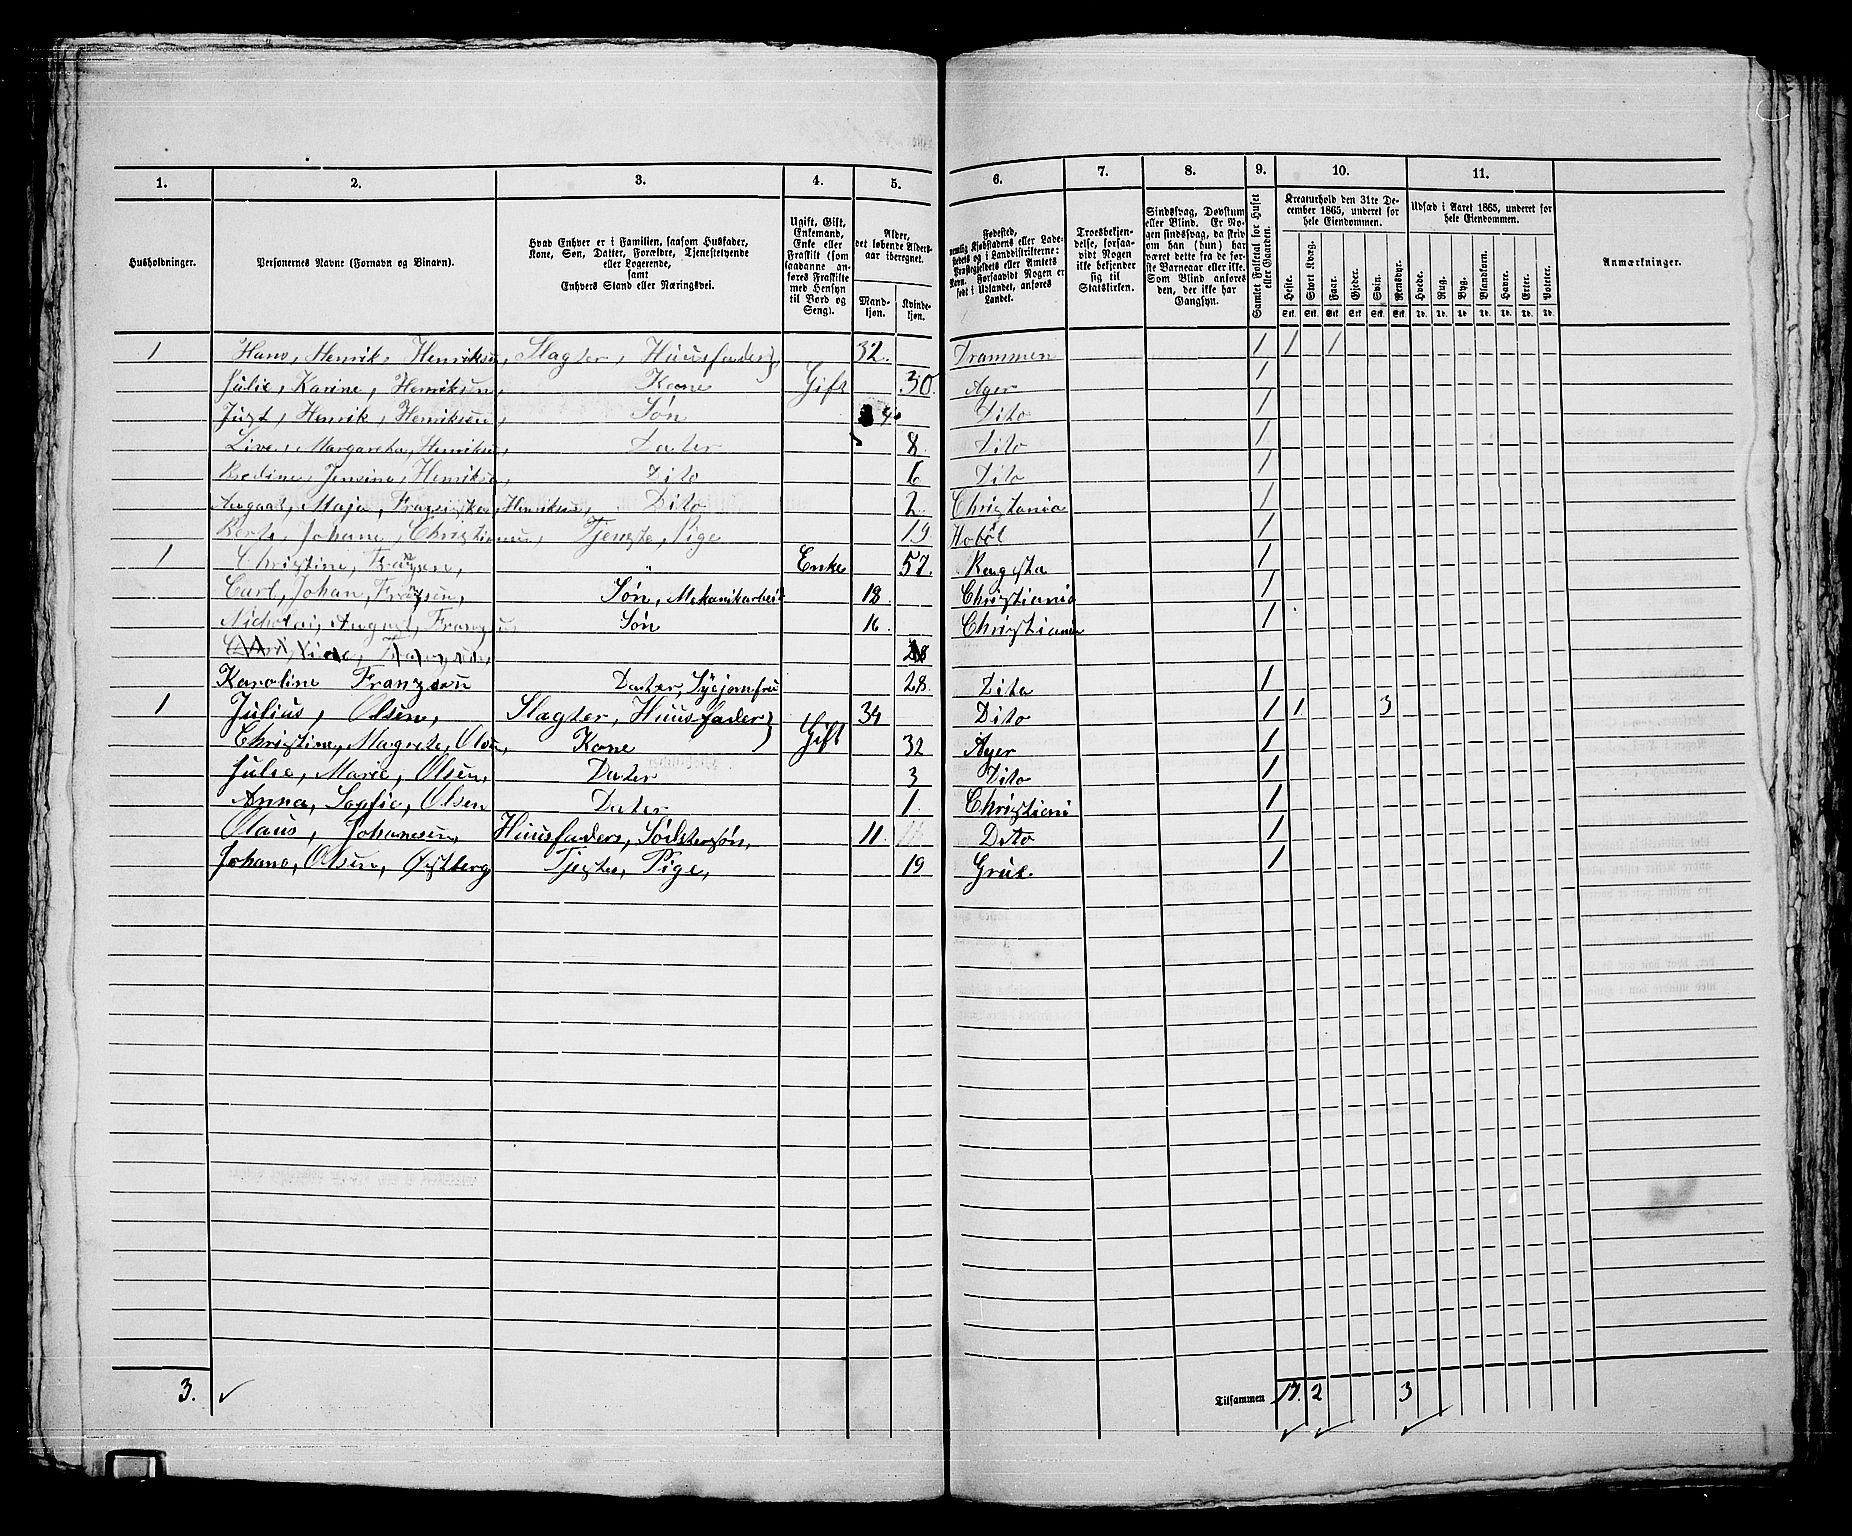 1. 2. 3. 4. 5. 6. 7. 8. 9. 10. 11.
Husholdninger.
Personernes Navne (Fornavn og Binavn).
Hvad Enhver er i Familien, saasom Husfader, Kone, Søn, Datter, Forældre, Tjenestetyende eller Logerende, samt Enhvers Stand eller Næringsvei.
Ugift, Gift, Enkemand, Enke eller Fraskilt (som saadanne anføres Fraskilte med Hensyn til Bord og Seng).
Alder, det løbende Aldersaar iberegnet.
Mandkjøn. Kvindekjøn.
Fødested, nemlig Kjøbstadens eller Ladestedets og i Landdistrikterne: Præstegjeldets eller Amtets Navn. Forsaavidt Nogen er født i Udlandet, anføres Landet.
Troesbekjendelse, forsaavidt Nogen ikke bekjender sig til Statskirken.
Sindssvag, Døvstum eller Blind. Er Nogen sindssvag, da skrives om han (hun) har været dette fra de første Barneaar eller ikke. Som Blind anføres den, der ikke har Gangsyn.
Samlet Folketal for Huset eller Gaarden.
Kreaturhold den 31te December 1865, underet for hele Eiendommen.
Heste. Stort Kvæg. Faar. Gjeder. Svin. Rensdyr.
Udsæd i Aaret 1865, underet for hele Eiendommen.
Hvede. Rug. Byg. Blandkorn. Havre. Erter. Poteter.
Anmærkninger.
1 Hans, Henrik, Henriksen, Slagter, Huusfader 32. Drammen 1 1 1
Julie, Karine, Henriksen, Kone Gift 30. Ager 1
Just, Henrik, Henriksen, Søn Dito 1
Live, Margaretha, Henriksen, Dater 8. Dito 1
Bodine, Jensine, Henriksen, Dito 6 Dito 1
August, Maja, Fransiska, Henriksen, Dito 2. Christania 1
Berte, Johane, Christiansen, Tjengste, Pige 19 Hobøl 1
1 Christine, Franzen, " Enke 57. 1
Carl, Johan, Franzen, Søn, Mekanikarbeid 18. Christiania 1
Nicholai, August, Franzen, Søn 16. Christiania 1
Karoline Franzsen Dater, Syejomfru 28. Dito 1
1 Julius, Olsen, Slagter, Huusfader 34 Dito 1 1 3
Christine, Magrete, Olsen, Kone Gift 32 Ager 1
Julie, Marie, Olsen, Dater 3 Dito 1
Anna, Sophie, Olsen Dater 1. Christiani 1
Olaus, Johannesen, Huusfaders, Södstersøn, 11. Dito 1
Johane, Olsen, Østberg Tjegstes, Pige, 19 Grue. 1
3. Tilsammen 17. 2 3